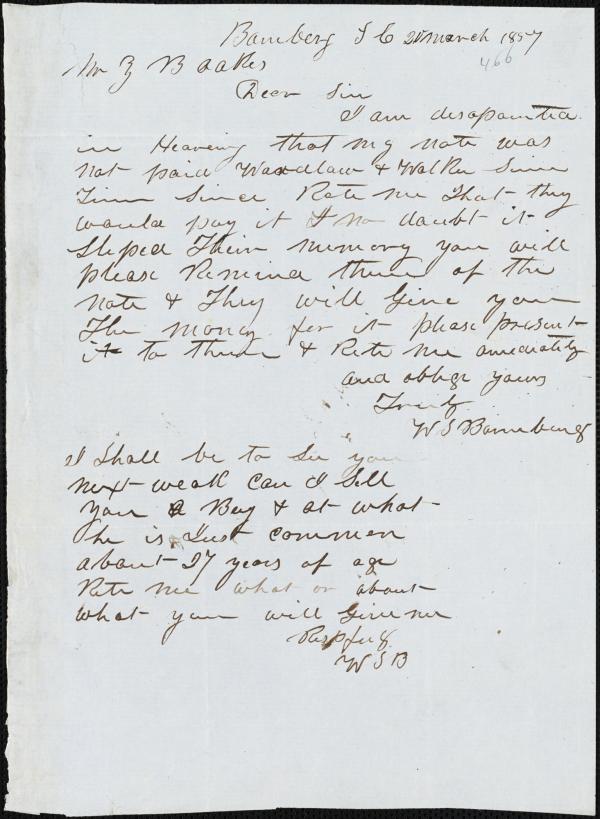 Bamberg S C 21 March 1857
466
Mr Z B Oakes
Dear Sir
I am desapointed
in Heareing that my note was
not paid Wardlaw & Walker Some
Time Since Rote me That they
would pay it I no daubt it
Sliped Their memory you will
please Remind them of the
note & They will Give you
The money for it please present
it to them & Rite me amediatly
and oblige yours
Truly
W S Bamberg
I Shall be to See you
next weak can I Sell
you a Boy & at what
he is Just common
about 27 years of age
Rite me what or about
what you will Give me
Respfuly
W S B